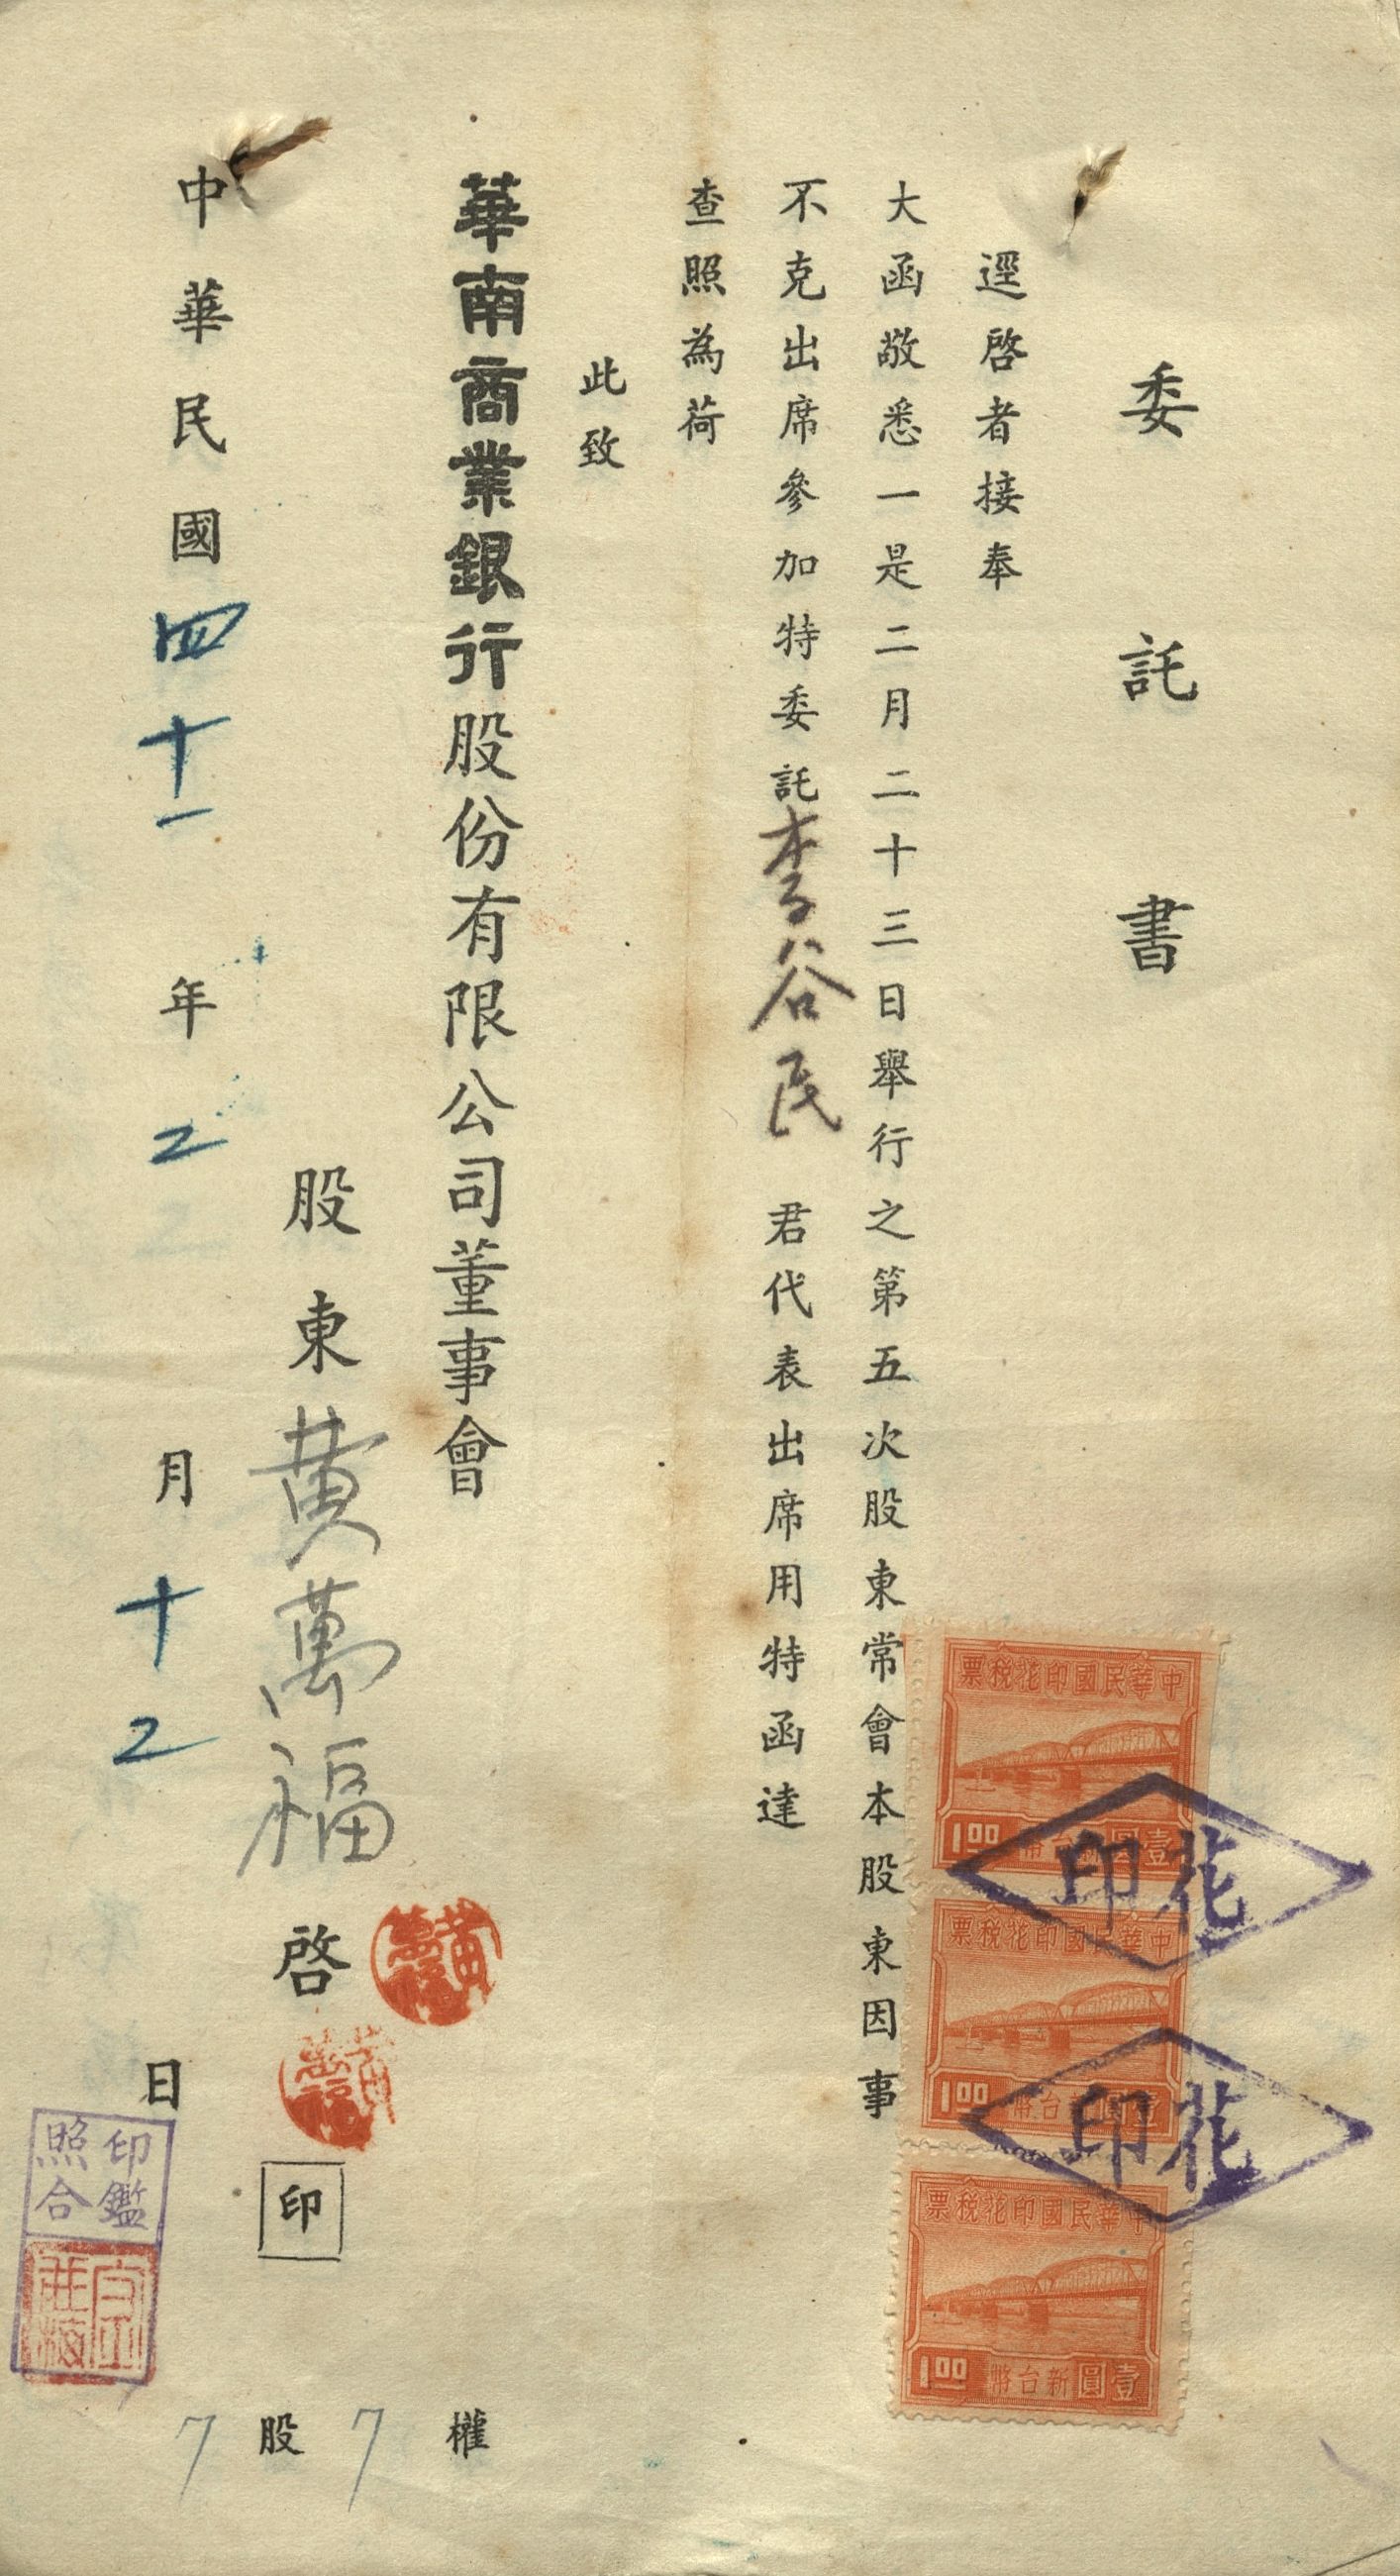 委託書
逕啓者接奉
大函敬悉一是二月二十三日舉行之第五次股東常會本股東因事
不克出席參加特委託李谷民君代表出席用特函達
查照為荷
此致
華南商業銀行股份有限公司董事會
股東黄萬福啓
印
中華民國四十一年2月十2日
權7
股7
中華民國印花稅票
壹圓新台幣
1.00
中華民國印花稅票
壹圓新台幣
1.00
中華民國印花稅票
壹圓新台幣
1.00
花印
花印
黄萬福
黄萬福
印鑑
照合